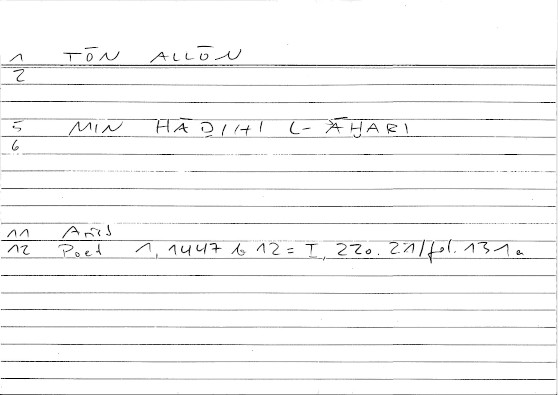 1 TŌN ALLŌN
2
5 MIN HĀḎIHI L-ĀḪARI
6
11 Arist
12 Poet 1, 1447 b 12 = I, 220.21/fol. 131a